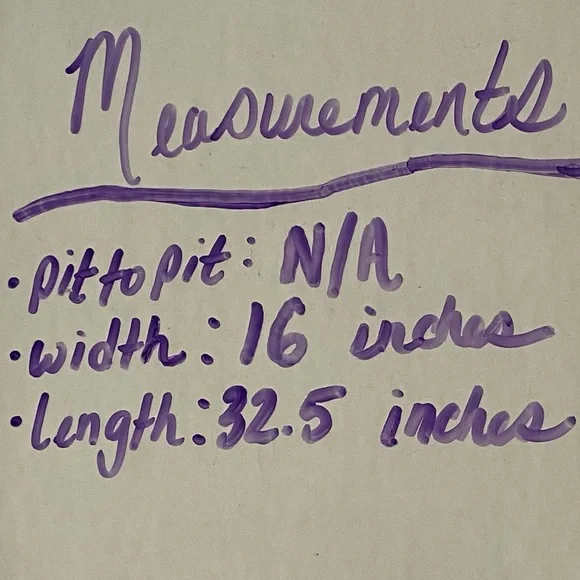 Measurements
· pit to pit: N/A
· width: 16 inches
· length: 32.5 inches